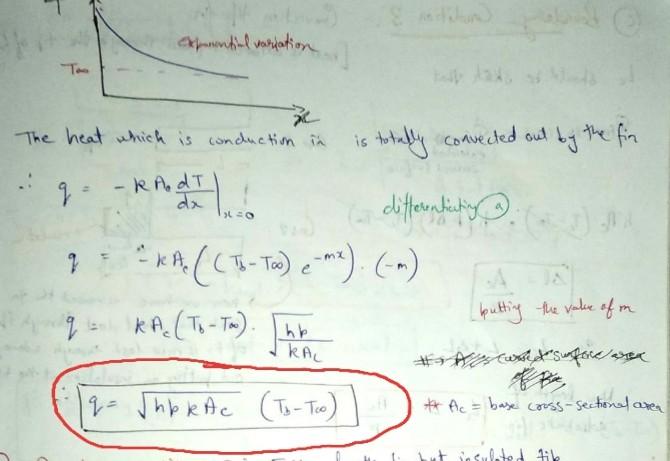 T
exponential variation
T∞
x
The heat which is conduction in is totally convected out by the fin
∴ q = - k Ac dT/dx |x=0
differentiating (a)
q = - k Ac ((Tb - T∞) e^-mx) . (-m)
putting the value of m
q = k Ac (Tb - T∞) . √(hp/kAc)
∴ q = √(hpkAc) (Tb - T∞)
** Ac = base cross-sectional area
but insulated tip